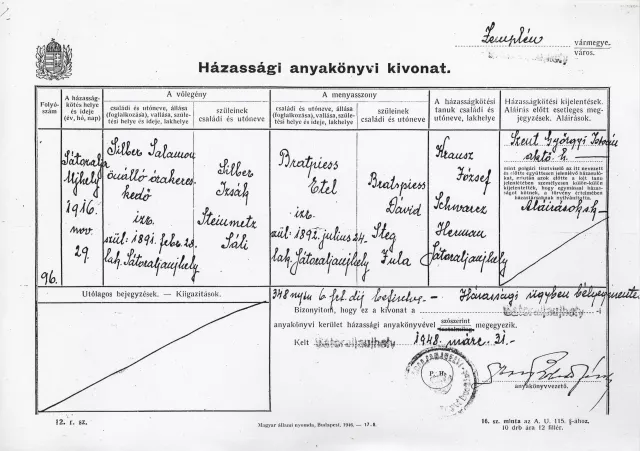 Zemplén vármegye.
város.
Házassági anyakönyvi kivonat.
Folyó-
szám
A házasság-
kötés helye
és ideje
(év, hó, nap)
A vőlegény
családi és utóneve, állása
(foglalkozása), vallása, szüle-
tési helye és ideje, lakhelye
szüleinek
családi és utóneve
A menyasszony
családi és utóneve, állása
(foglalkozása), vallása, szüle-
tési helye és ideje, lakhelye
szüleinek
családi és utóneve
A házasságkötési
tanuk családi és
utóneve, lakhelye
Házasságkötési kijelentések.
Aláírás előtt esetleges meg-
jegyzések. Aláírás.
96.
Sátoralja
Ujhely
1916
nov.
29.
Silber Salamon
önálló órakeres-
kedő
izr.
szül: 1891. febr. 28.
lak. Sátoraljaujhely
Silber
Izsák
Steinmetz
Sáli
Bratpiess
Etel
izr.
szül: 1892. julius 24.
lak. Sátoraljaujhely
Bratspiess
Dávid
Steg
Fula
Krausz
József
Schwarcz
Herman
Sátoraljaujhely
Szent Györgyi István
mint polgári tisztviselő az itt nevezett
Aláírások sk.
Utólagos bejegyzések. — Kiigazítások.
348 nysz 6 fill. díj befizetve. — Házassági ügyben bélyegmentes
Bizonyítom, hogy ez a kivonat a Sátoraljaujhely -i
anyakönyvi kerület házassági anyakönyvével szószerint megegyezik.
Kelt Sátoraljaujhely 1948. márc. 31.
P. H.
anyakönyvvezető.
12. r. sz.
Magyar állami nyomda, Budapest, 1946. — 17.8.
16. sz. minta az A. U. 115. §-ához.
10 drb ára 12 fillér.